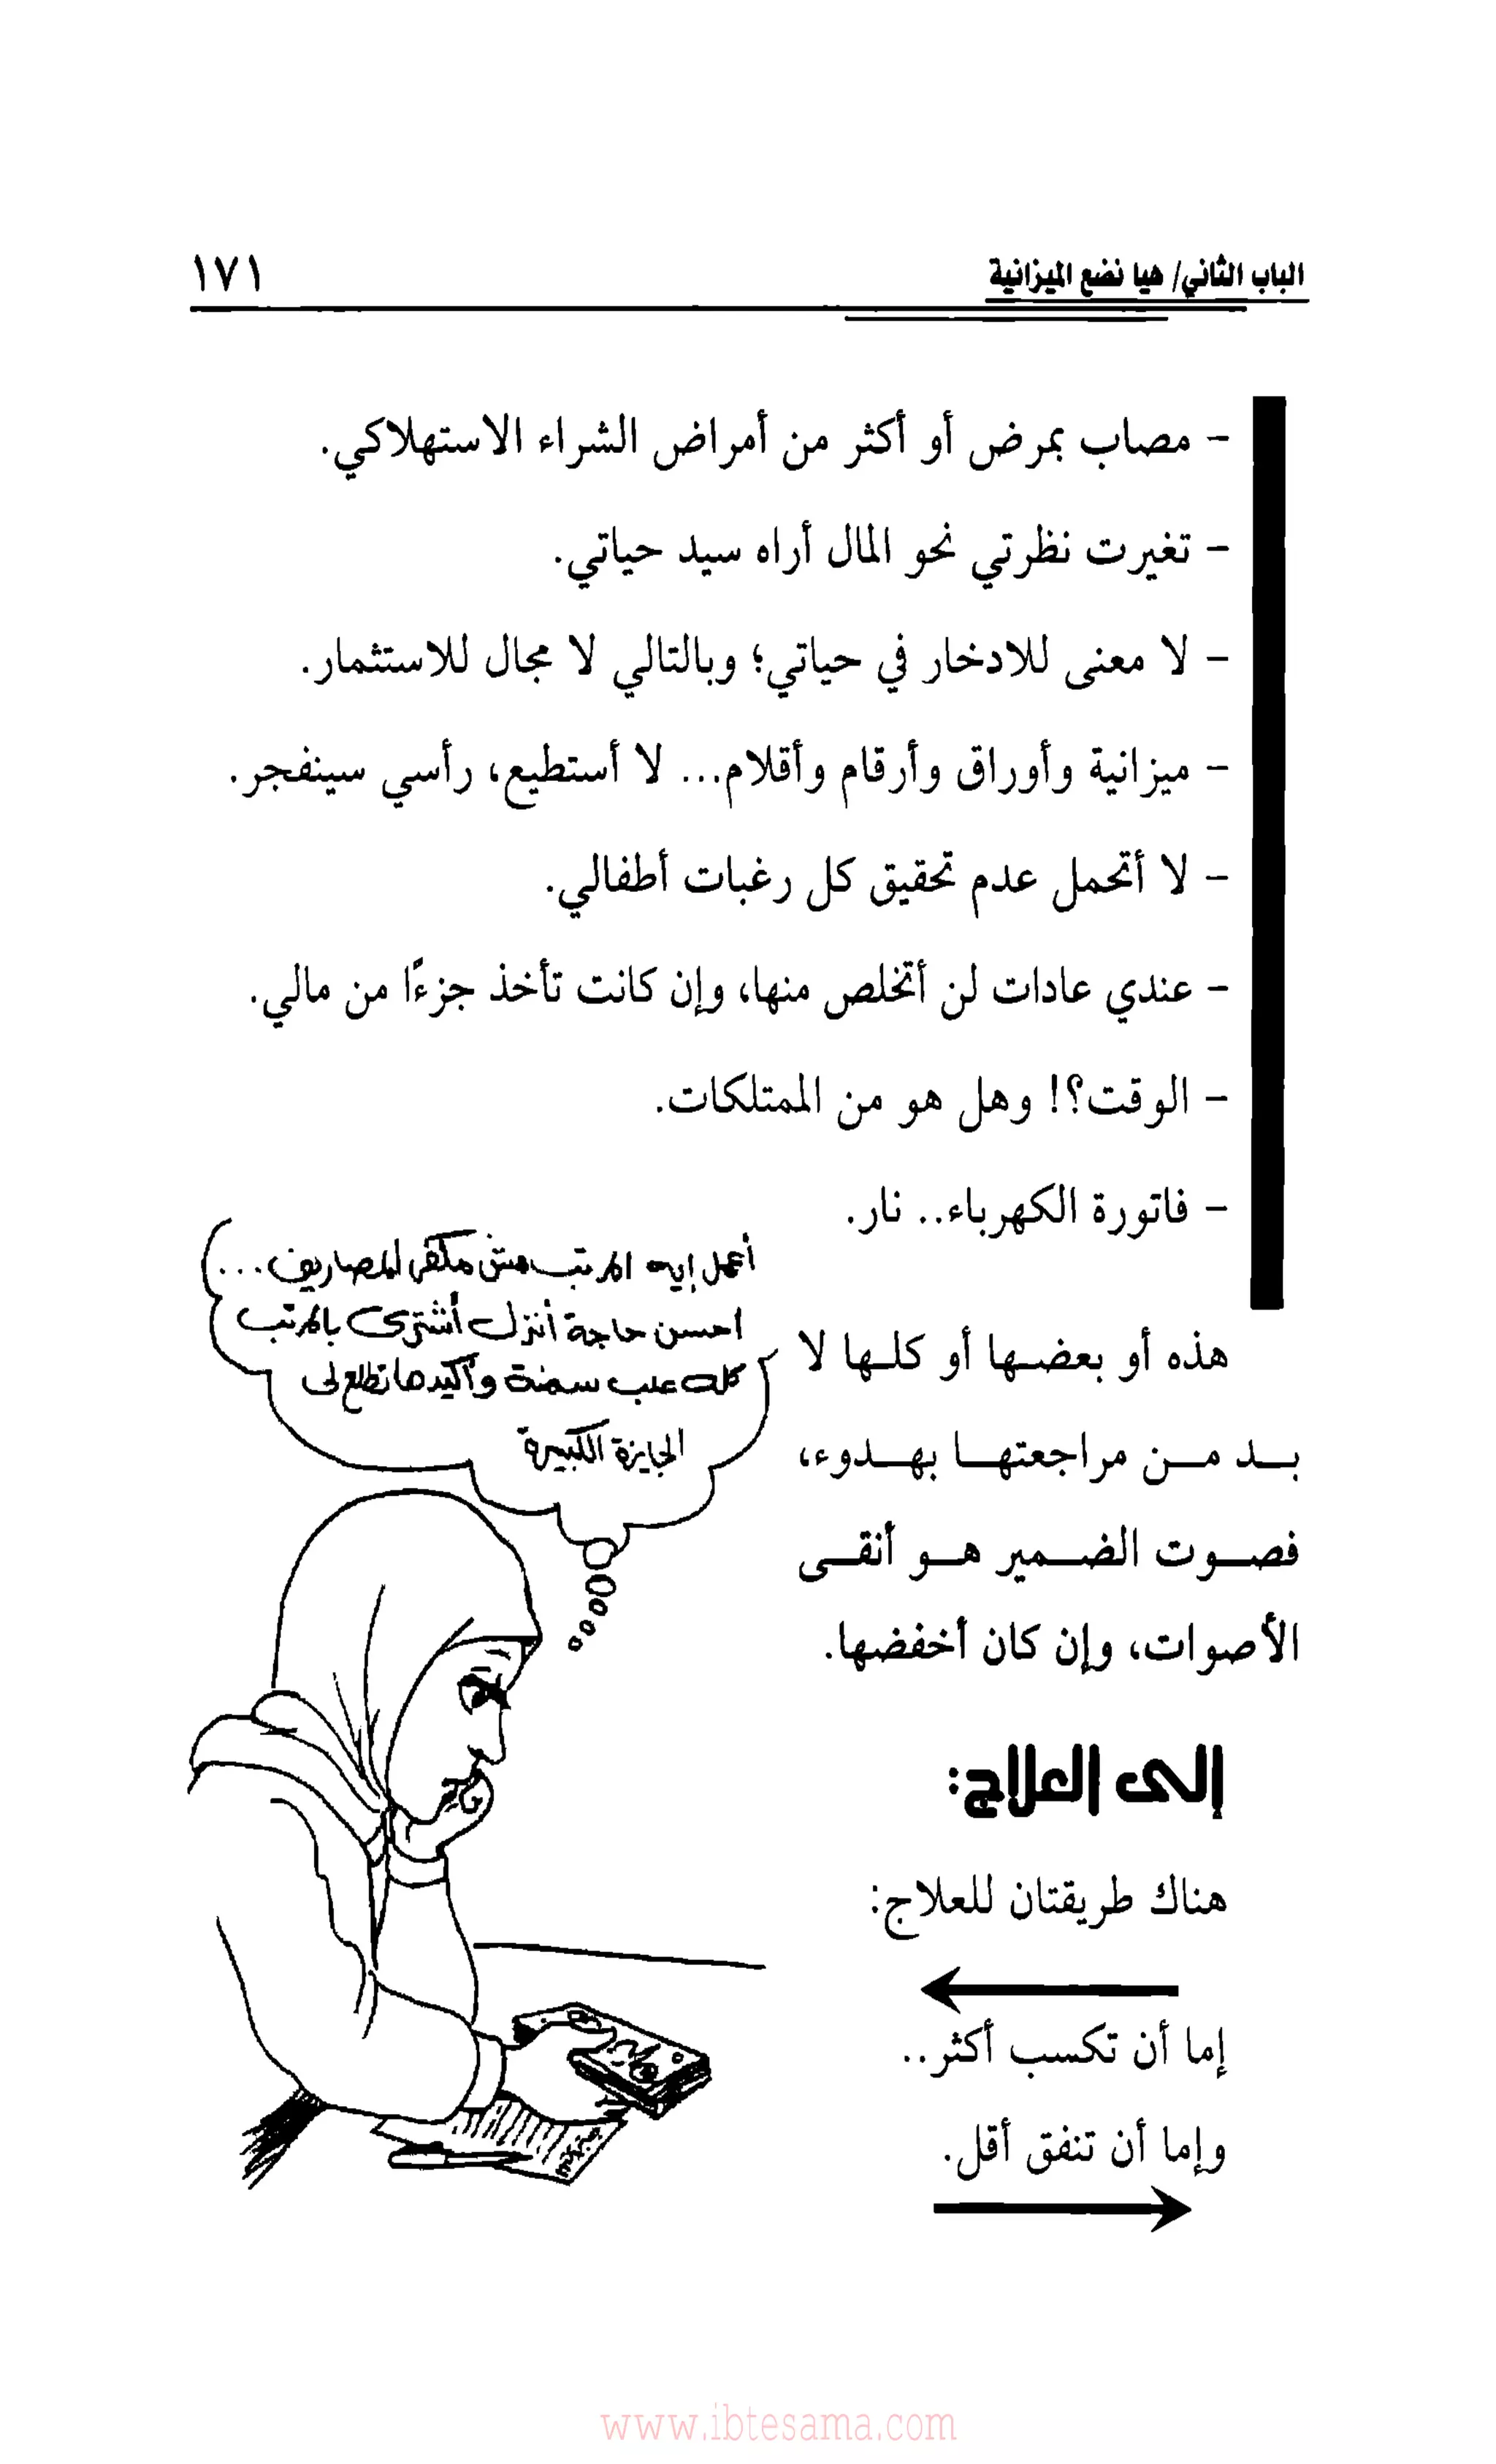 الباب الثاني/ هيا نضع الميزانية
١٧١
- مصاب بمرض أو أكثر من أمراض الشراء الاستهلاكي.
- تغيرت نظرتي نحو المال أراه سيد حياتي.
- لا معنى للادخار في حياتي؛ وبالتالي لا مجال للاستثمار.
- ميزانية وأوراق وأرقام وأقلام... لا أستطيع، رأسي سينفجر.
- لا أتحمل عدم تحقيق كل رغبات أطفالي.
- عندي عادات لن أتخلص منها، وإن كانت تأخذ جزءًا من مالي.
- الوقت؟! وهل هو من الممتلكات.
- فاتورة الكهرباء.. نار.
أعمل إيه المرتب مش مكفى المصاريف...
احسن حاجة أنزل أشترى بالمرتب
كله علب سمنة وأكيد هاتطلع لى
الجايزة الكبيرة
هذه أو بعضها أو كلها لا
بد من مراجعتها بهدوء،
فصوت الضمير هو أنقى
الأصوات، وإن كان أخفضها.
إلى العلاج:
هناك طريقتان للعلاج:
إما أن تكسب أكثر..
وإما أن تنفق أقل.
www.ibtesama.com